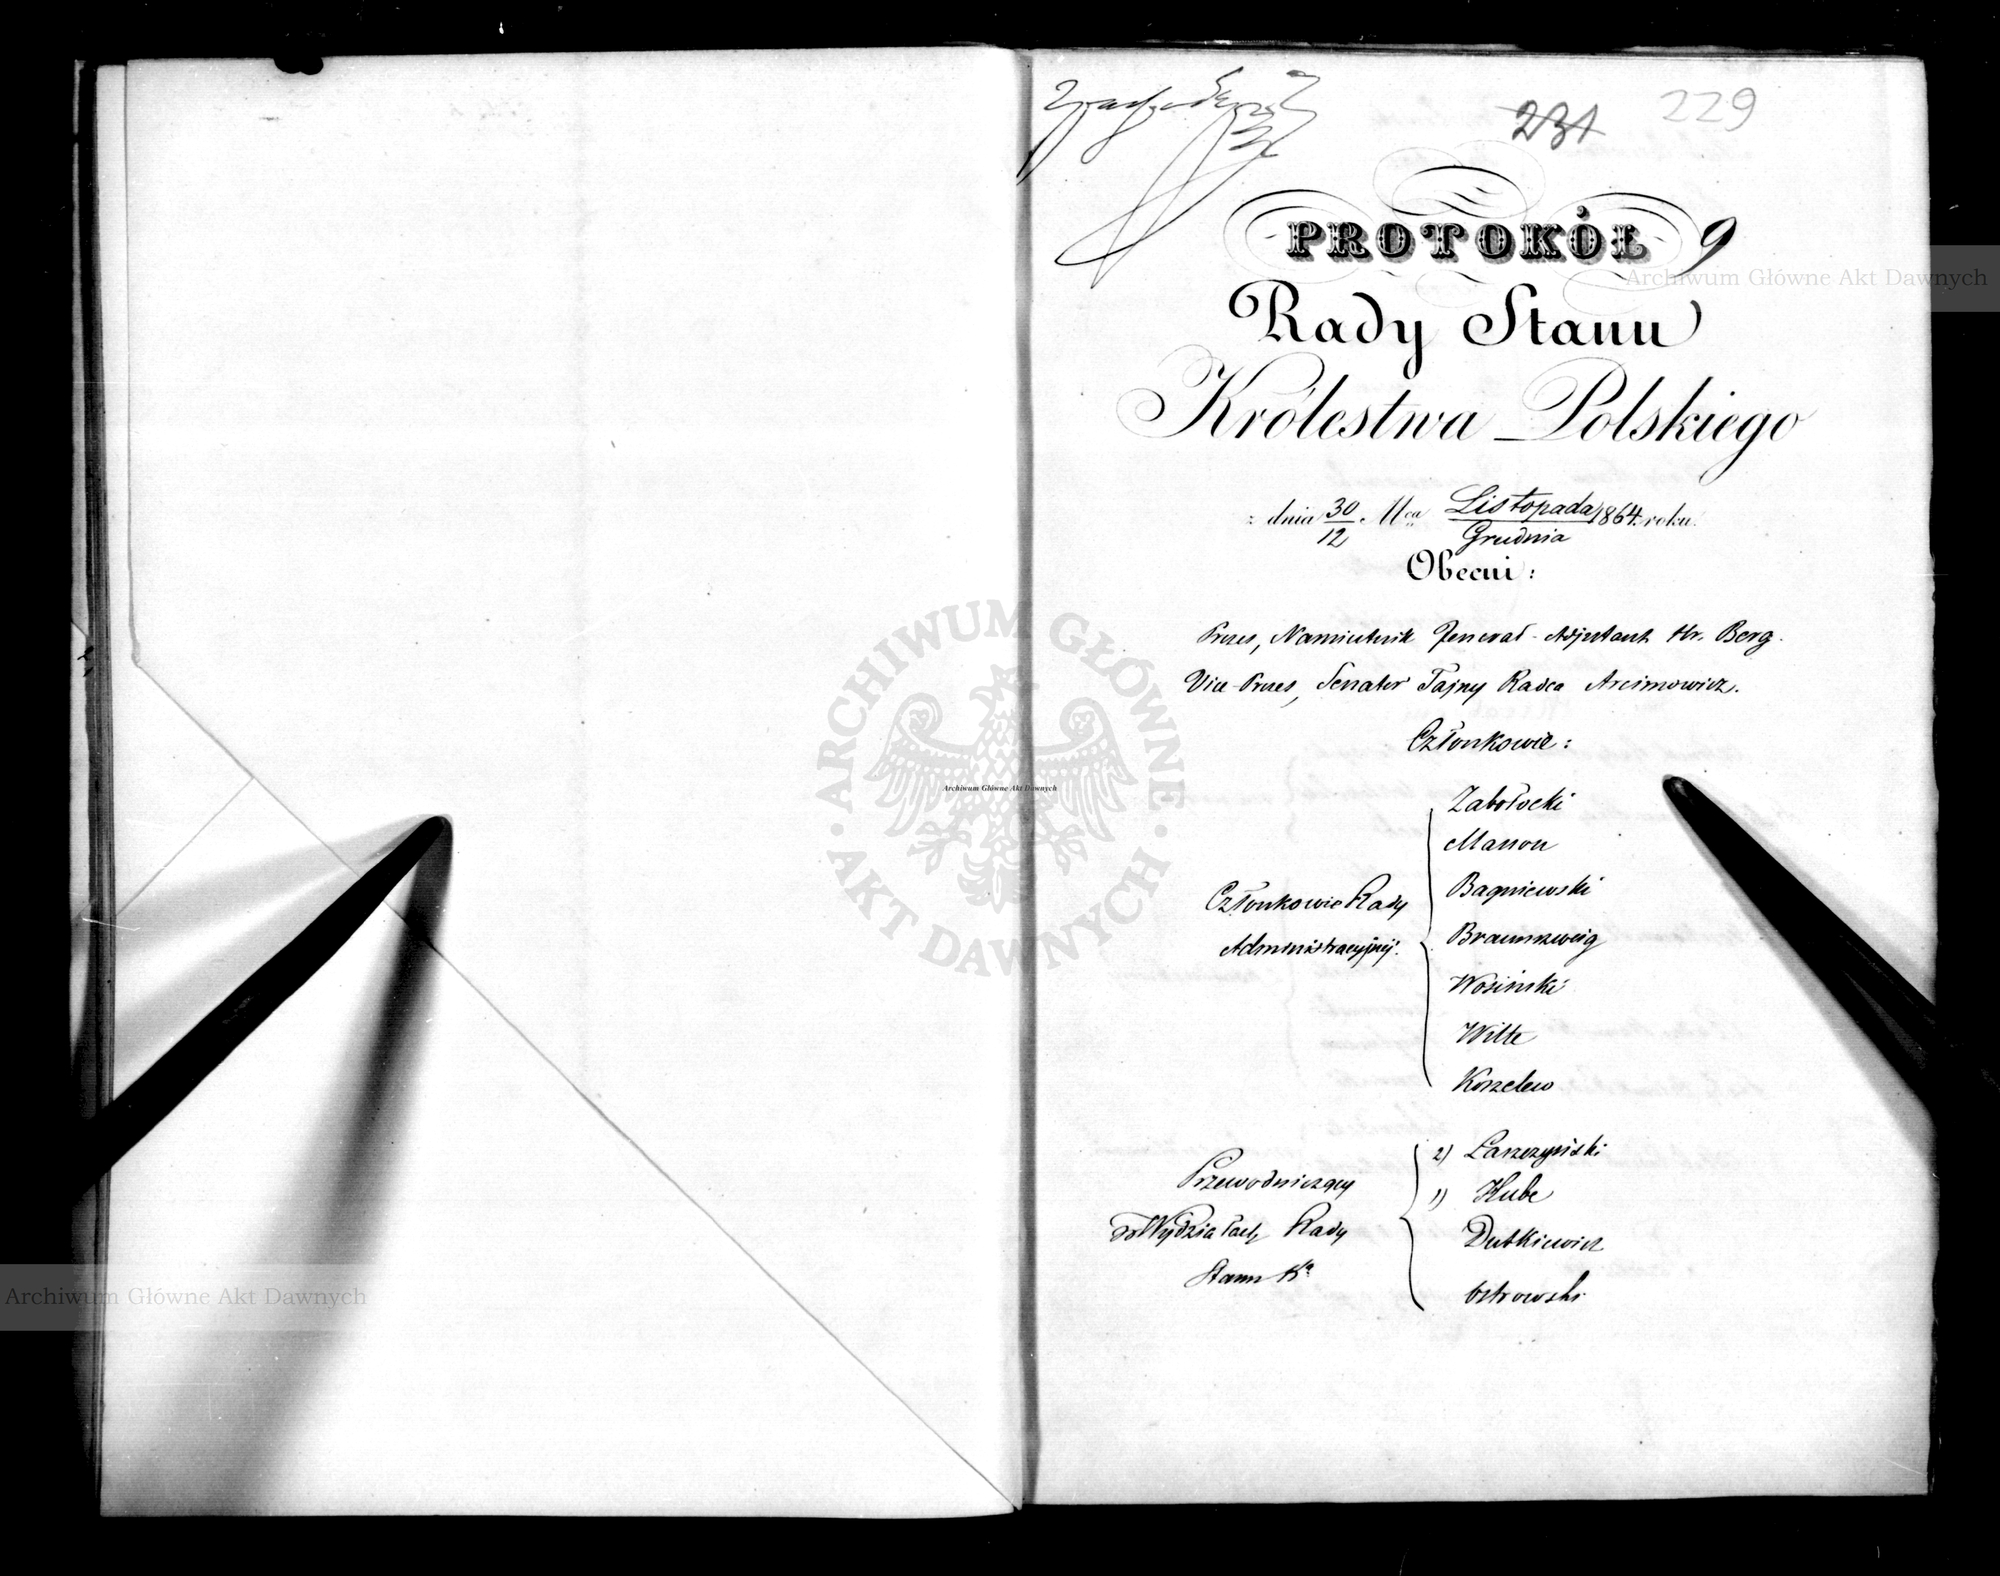 231 229
PROTOKÓŁ 9
Rady Stanu
Królestwa Polskiego
z dnia 30/12 Mca Listopada/Grudnia 1864 roku.
Obecni:
Prezes, Namiestnik Jenerał-Adjutant Hr. Berg.
Vice-Prezes, Senator Tajny Radca Arcimowicz.
Członkowie:
Członkowie Rady
Administracyjnej.
Zabołocki
Manon
Bagniewski
Braunszweig
Wosiński
Witte
Koszelew
Przewodniczący
w Wydziałach Rady
Stanu Ka
2) Łaszczyński
1) Hube
Dutkiewicz
Ostrowski
Archiwum Główne Akt Dawnych
ARCHIWUM GŁÓWNE AKT DAWNYCH
Archiwum Główne Akt Dawnych
Archiwum Główne Akt Dawnych